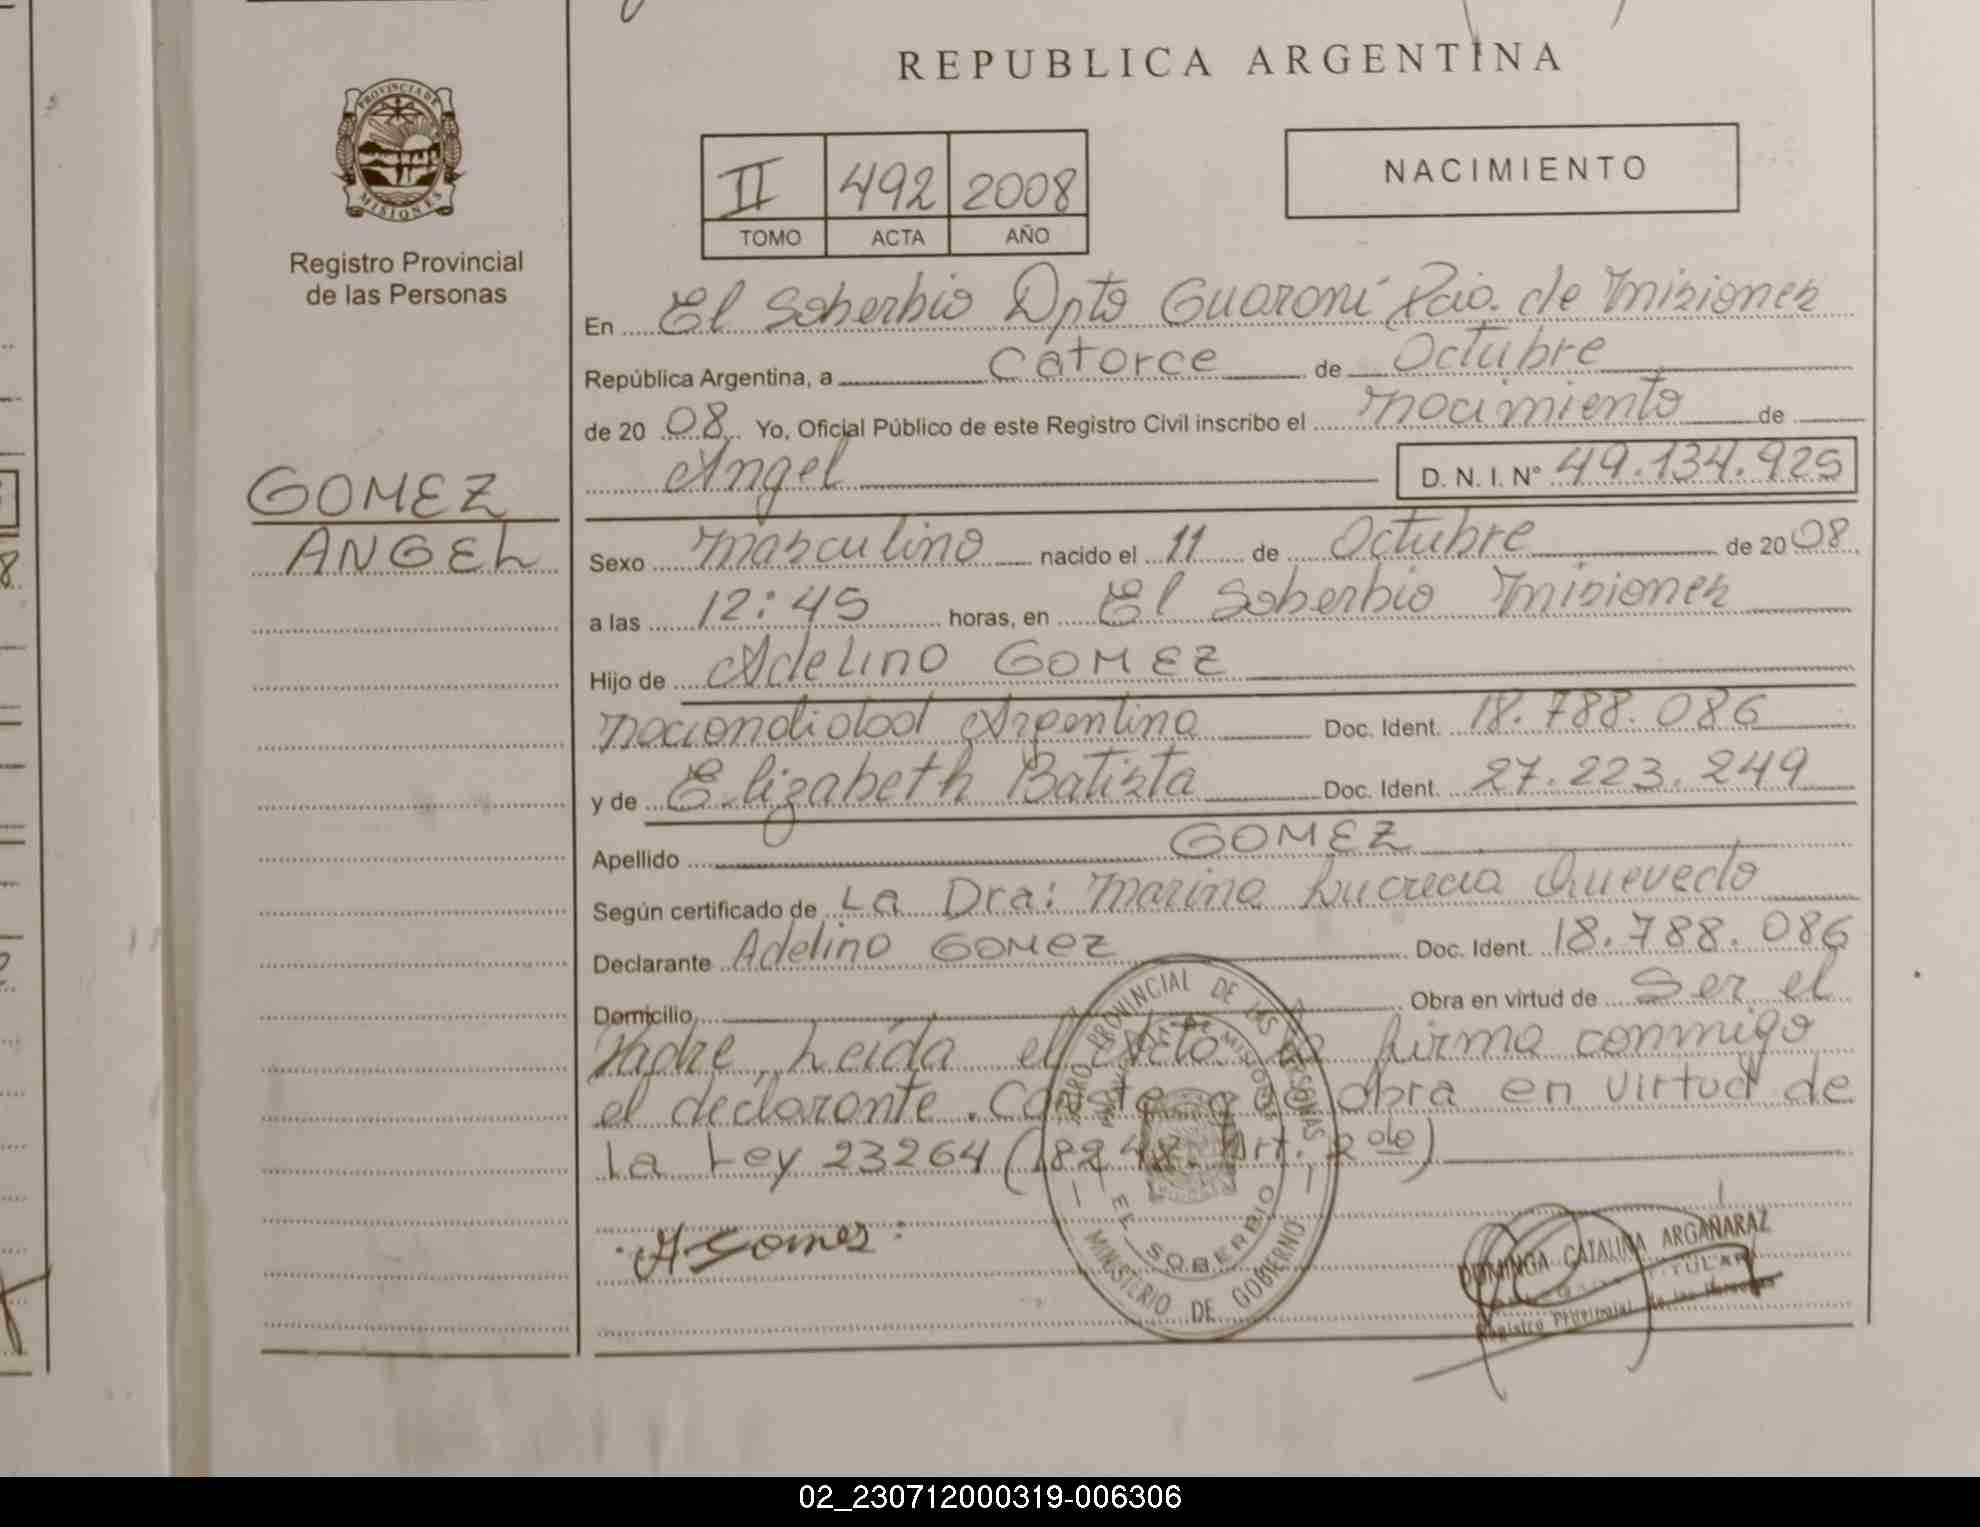 REPUBLICA ARGENTINA
PROVINCIA DE MISIONES
Registro Provincial
de las Personas
II 492 2008
TOMO ACTA AÑO
NACIMIENTO
En El Soberbio Dpto Guaraní Pcia. de Misiones
República Argentina, a catorce de Octubre
de 2008 Yo, Oficial Público de este Registro Civil inscribo el nacimiento de
Angel D. N. I. Nº 49.134.925
GOMEZ
ANGEL
Sexo masculino nacido el 11 de Octubre de 2008
a las 12:45 horas, en El Soberbio Misiones
Hijo de Adelino GOMEZ
nacionalidad Argentina Doc. Ident. 18.788.086
y de Elizabeth Batista Doc. Ident. 27.223.249
Apellido GOMEZ
Según certificado de La Dra: Marina Lucrecia Quevedo
Declarante Adelino GOMEZ Doc. Ident. 18.788.086
Domicilio Obra en virtud de Ser el
Padre, Leída el Acta la firma conmigo
el declarante. Conste que obra en virtud de
La Ley 23264 (18248. Art. 2do)
A Gomez
REGISTRO PROVINCIAL DE LAS PERSONAS
EL SOBERBIO
MINISTERIO DE GOBIERNO
DOMINGA CATALINA ARGAÑARAZ
TITULAR
Registro Provincial de las Personas
02_230712000319-006306